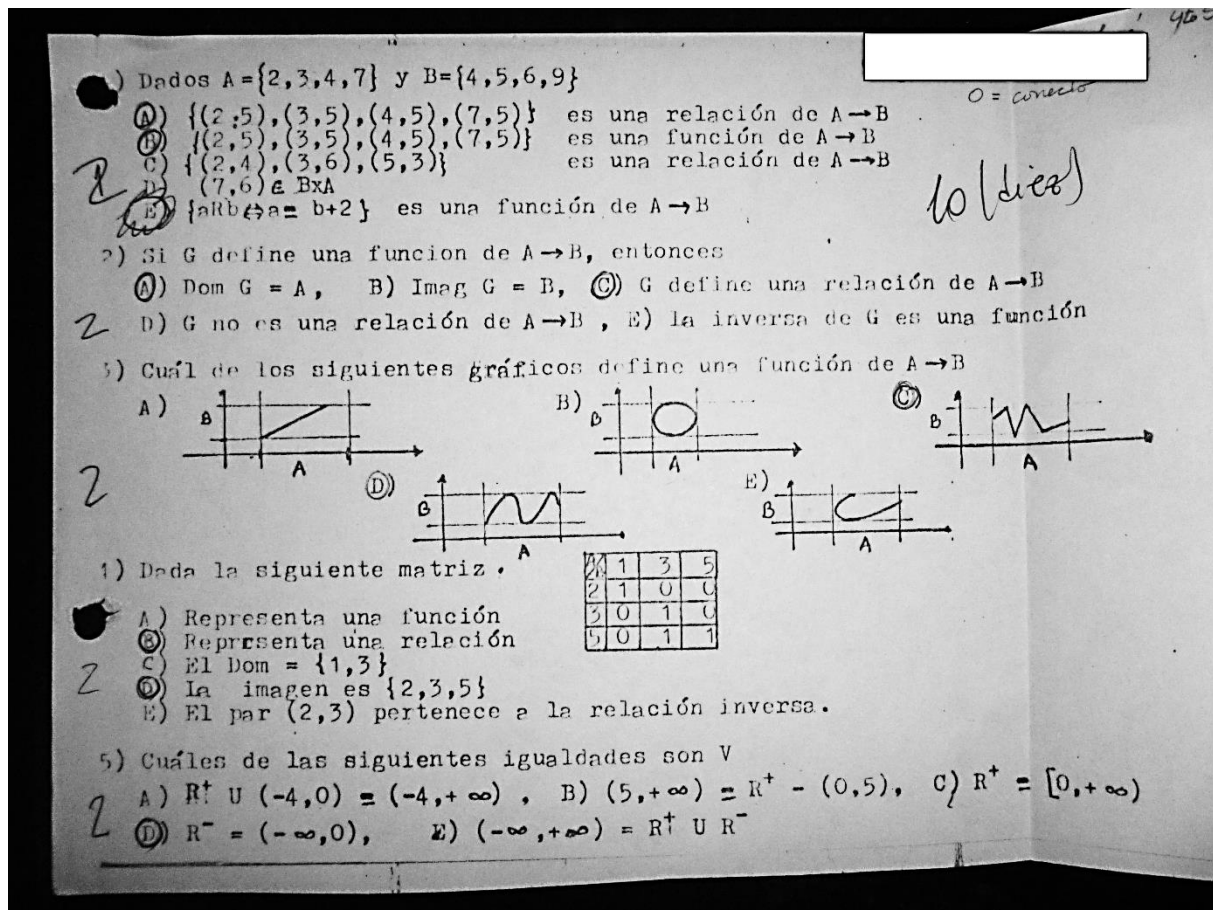 4to
O = correcto
) Dados A={2,3,4,7} y B={4,5,6,9}
A) {(2;5),(3,5),(4,5),(7,5)} es una relación de A→B
B) {(2,5),(3,5),(4,5),(7,5)} es una función de A→B
C) {(2,4),(3,6),(5,3)} es una relación de A→B
2 D) (7,6)∈ BxA
E) {aRb⇔a= b+2} es una función de A→B
10 (diez)
2) Si G define una funcion de A→B, entonces
A) Dom G = A, B) Imag G = B, C) G define una relación de A→B
2 D) G no es una relación de A→B , E) la inversa de G es una función
3) Cuál de los siguientes gráficos define una función de A→B
A) B A
B) B A
C) B A
2
D) B A
E) B A
4) Dada la siguiente matriz.
1 3 5
2 1 0 0
3 0 1 0
5 0 1 1
A) Representa una función
B) Reprrsenta una relación
C) El Dom = {1,3}
2 D) La imagen es {2,3,5}
E) El par (2,3) pertenece a la relación inversa.
5) Cuáles de las siguientes igualdades son V
A) R⁺ U (-4,0) = (-4,+ ∞) , B) (5,+∞) = R⁺ - (0,5), C) R⁺ = [0,+ ∞)
2 D) R⁻ = (-∞,0), E) (-∞,+∞) = R⁺ U R⁻